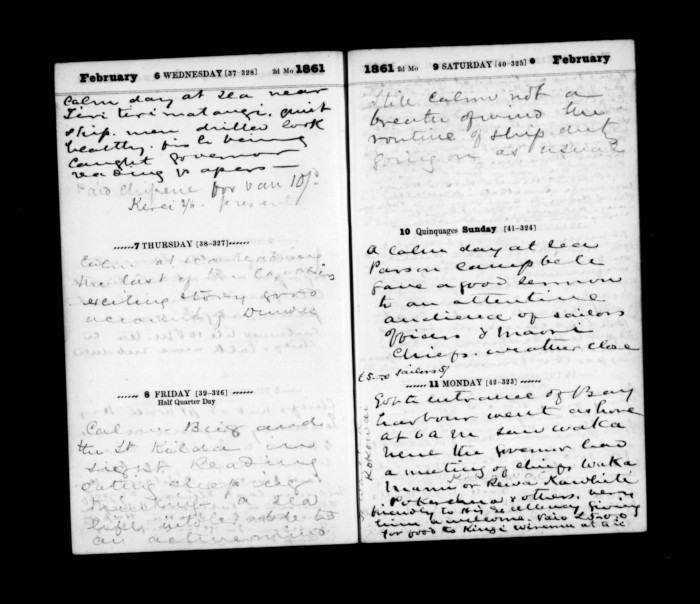 February 6 WEDNESDAY [37-328] 2d Mo 1861
Calm day at sea near
Tiri tiri matangi. quiet
ship. men drilled look
healthy. fish being
caught Governor
reading papers
Paid for van 10/.
Kerei 2/6. present
7 THURSDAY [38-327]
Calm at sea reading
the last of the
exciting story good
account of
8 FRIDAY [39-326]
Half Quarter Day
Calm. Brig and
the St Kilda in
sight. Reading
eating sleeping
thinking. a sea
life
an active mind
1861 2d Mo 9 SATURDAY [40-325] February
Still calm not a
breath of wind the
routine of ship duty
going on as usual
10 Quinquages Sunday [41-324]
A calm day at sea
Parson Campbell
gave a good sermon
to an attentive
audience of sailors
officers & Maori
Chiefs. weather clear
sailors 5/
11 MONDAY [42-323]
Got to entrance of Bay
harbour went ashore
at 6 A M saw waka
Nene the Governor had
a meeting of chiefs Waka
or Rewa Kawhiti
& others. were
friendly to His Excellency giving
him a welcome. Paid
for food to Kingi Wiremu at
Kokowai